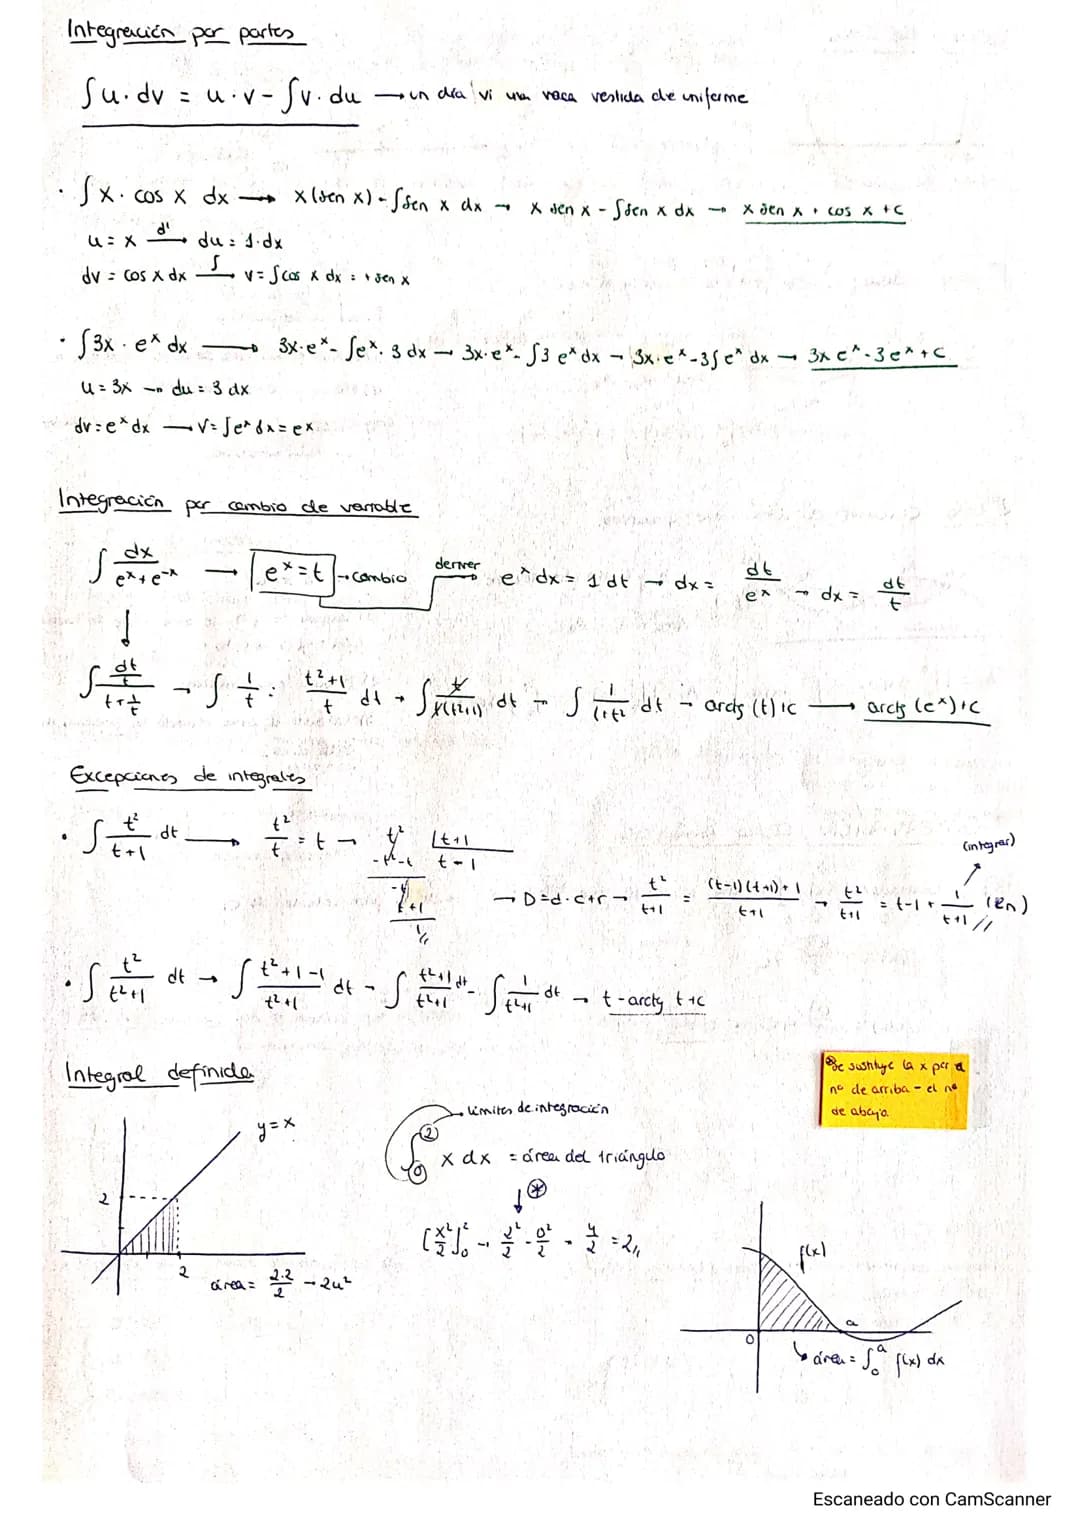 Integración por partes
∫u·dv = u·v - ∫v·du → un día vi una vaca vestida de uniforme
· ∫x·cos x dx → x(sen x) - ∫sen x dx → x sen x - ∫sen x dx → x sen x + cos x + C
u = x —d'→ du = 1·dx
dv = cos x dx —∫→ v = ∫cos x dx = + sen x
· ∫3x·eˣ dx → 3x·eˣ - ∫eˣ·3 dx → 3x·eˣ - ∫3 eˣ dx → 3x·eˣ - 3∫eˣ dx → 3x eˣ - 3eˣ + C
u = 3x → du = 3 dx
dv = eˣ dx → v = ∫eˣ dx = eˣ
Integración por cambio de variable
∫ dx/(eˣ+e⁻ˣ) → eˣ = t → cambio derivar → eˣ dx = 1 dt → dx = dt/eˣ → dx = dt/t
∫ (dt/t)/(t+1/t) → ∫ 1/t : (t²+1)/t dt → ∫ t/(t(t²+1)) dt → ∫ 1/(1+t²) dt → arctg (t) + C → arctg (eˣ) + C
Excepciones de integrales
· ∫ t²/(t+1) dt → t²/t = t → t² |t+1
-t²-t t-1
-t
t+1
1//
(integrar)
→ D=d·c+r → t²/(t+1) = ((t-1)(t+1)+1)/(t+1) → t²/(t+1) = t-1 + 1/(t+1) // (ln)
· ∫ t²/(t²+1) dt → ∫ (t²+1-1)/(t²+1) dt → ∫ (t²+1)/(t²+1) dt - ∫ 1/(t²+1) dt → t - arctg t + C
Integral definida
⊛ Se sustituye la x por el
nº de arriba - el nº
de abajo.
y = x
2
2
área = 2·2/2 → 2u²
límites de integración
∫₀² x dx = área del triángulo
↓ ⊛
[x²/2]₀² → 2²/2 - 0²/2 = 4/2 = 2//
f(x)
a
0
↳ área = ∫₀ᵃ f(x) dx
Escaneado con CamScanner